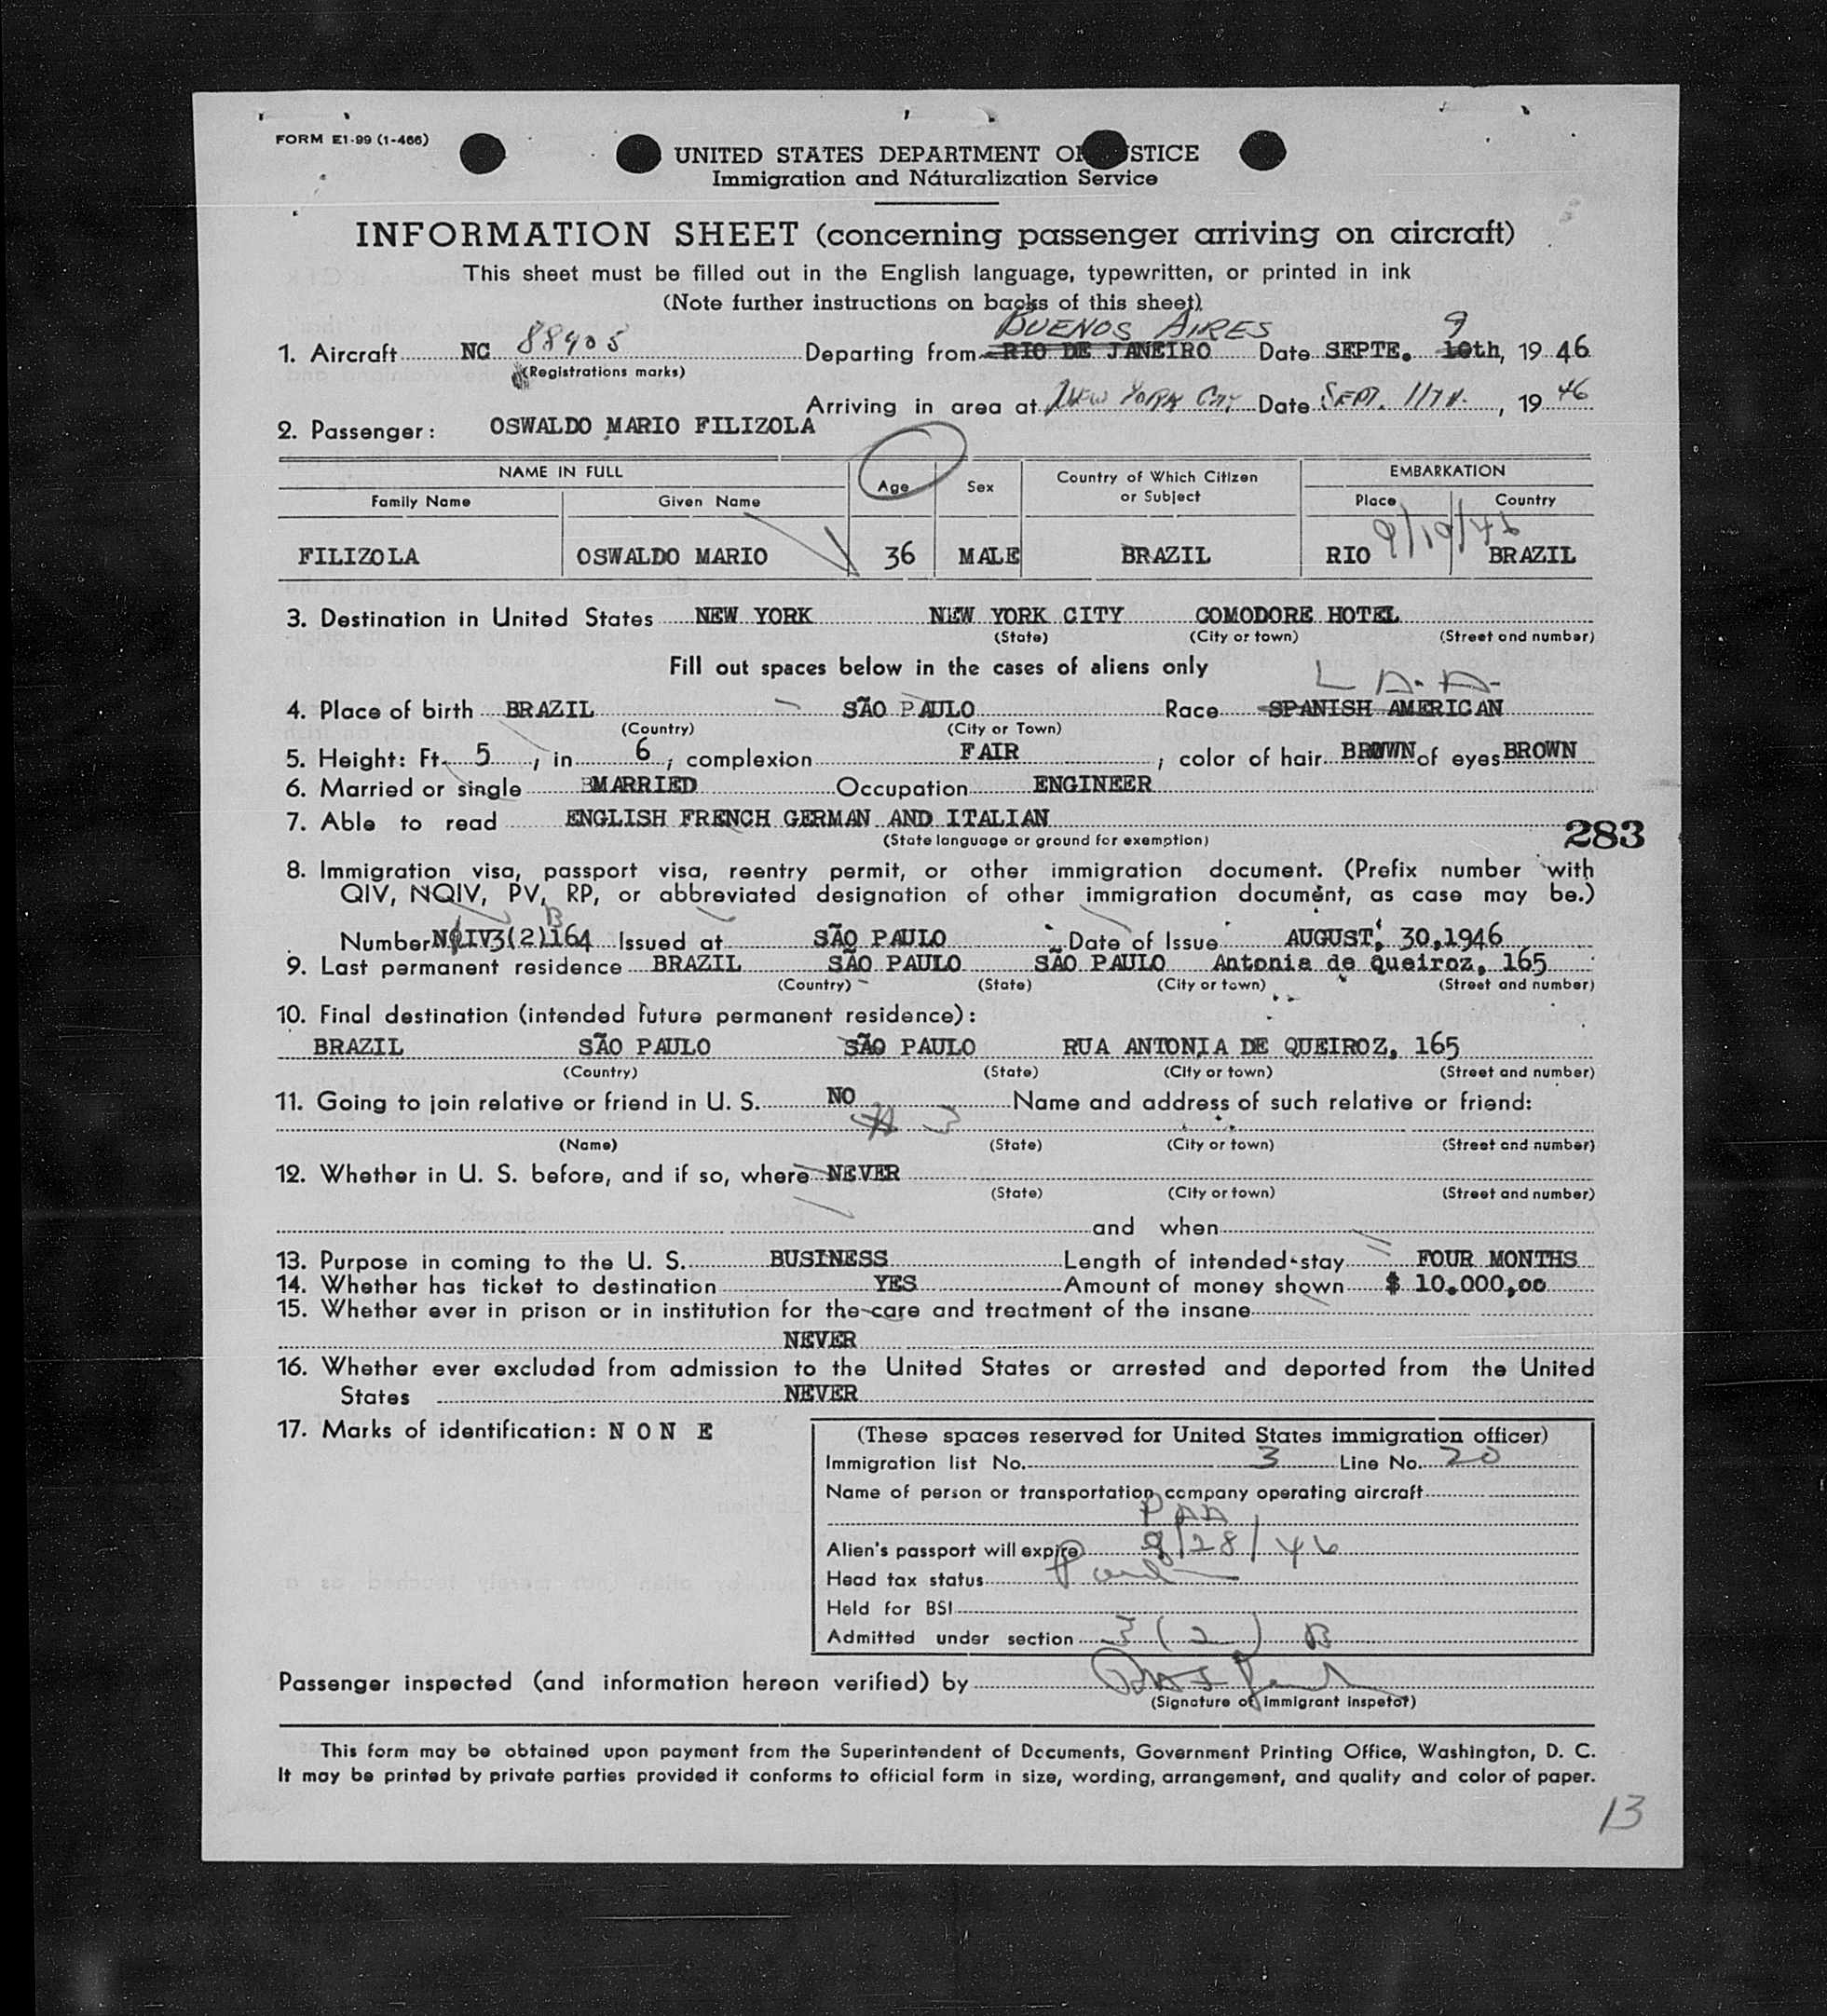 FORM E1-99 (1-466)
UNITED STATES DEPARTMENT OF JUSTICE
Immigration and Naturalization Service
INFORMATION SHEET (concerning passenger arriving on aircraft)
This sheet must be filled out in the English language, typewritten, or printed in ink
(Note further instructions on backs of this sheet)
BUENOS AIRES 9
1. Aircraft NC 88905 Departing from RIO DE JANEIRO Date SEPTE. 10th, 19 46
(Registrations marks)
Arriving in area at New York City Date SEPT. 11TH. , 19 46
2. Passenger: OSWALDO MARIO FILIZOLA
NAME IN FULL Age Sex Country of Which Citizen or Subject EMBARKATION
Family Name Given Name Place Country
9/10/46
FILIZOLA OSWALDO MARIO 36 MALE BRAZIL RIO BRAZIL
3. Destination in United States NEW YORK NEW YORK CITY COMODORE HOTEL
(State) (City or town) (Street and number)
Fill out spaces below in the cases of aliens only
4. Place of birth BRAZIL SÃO PAULO Race SPANISH AMERICAN
(Country) (City or Town)
5. Height: Ft. 5 , in 6 , complexion FAIR , color of hair BROWN of eyes BROWN
6. Married or single MARRIED Occupation ENGINEER
7. Able to read ENGLISH FRENCH GERMAN AND ITALIAN
(State language or ground for exemption)
283
8. Immigration visa, passport visa, reentry permit, or other immigration document. (Prefix number with
QIV, NQIV, PV, RP, or abbreviated designation of other immigration document, as case may be.)
B
Number NQIV3(2)164 Issued at SÃO PAULO Date of Issue AUGUST, 30,1946
9. Last permanent residence BRAZIL SÃO PAULO SÃO PAULO Antonia de Queiroz, 165
(Country) (State) (City or town) (Street and number)
10. Final destination (intended future permanent residence):
BRAZIL SÃO PAULO SÃO PAULO RUA ANTONIA DE QUEIROZ, 165
(Country) (State) (City or town) (Street and number)
11. Going to join relative or friend in U. S. NO Name and address of such relative or friend:
(Name) (State) (City or town) (Street and number)
12. Whether in U. S. before, and if so, where NEVER
(State) (City or town) (Street and number)
and when
13. Purpose in coming to the U. S. BUSINESS Length of intended stay FOUR MONTHS
14. Whether has ticket to destination YES Amount of money shown $ 10.000,00
15. Whether ever in prison or in institution for the care and treatment of the insane
NEVER
16. Whether ever excluded from admission to the United States or arrested and deported from the United
States NEVER
17. Marks of identification: N O N E
(These spaces reserved for United States immigration officer)
Immigration list No. 3 Line No. 20
Name of person or transportation company operating aircraft
PAA
Alien's passport will expire 9/28/46
Head tax status
Held for BSI
Admitted under section 3 (2) B
Passenger inspected (and information hereon verified) by
(Signature of immigrant inspetor)
This form may be obtained upon payment from the Superintendent of Documents, Government Printing Office, Washington, D. C.
It may be printed by private parties provided it conforms to official form in size, wording, arrangement, and quality and color of paper.
13